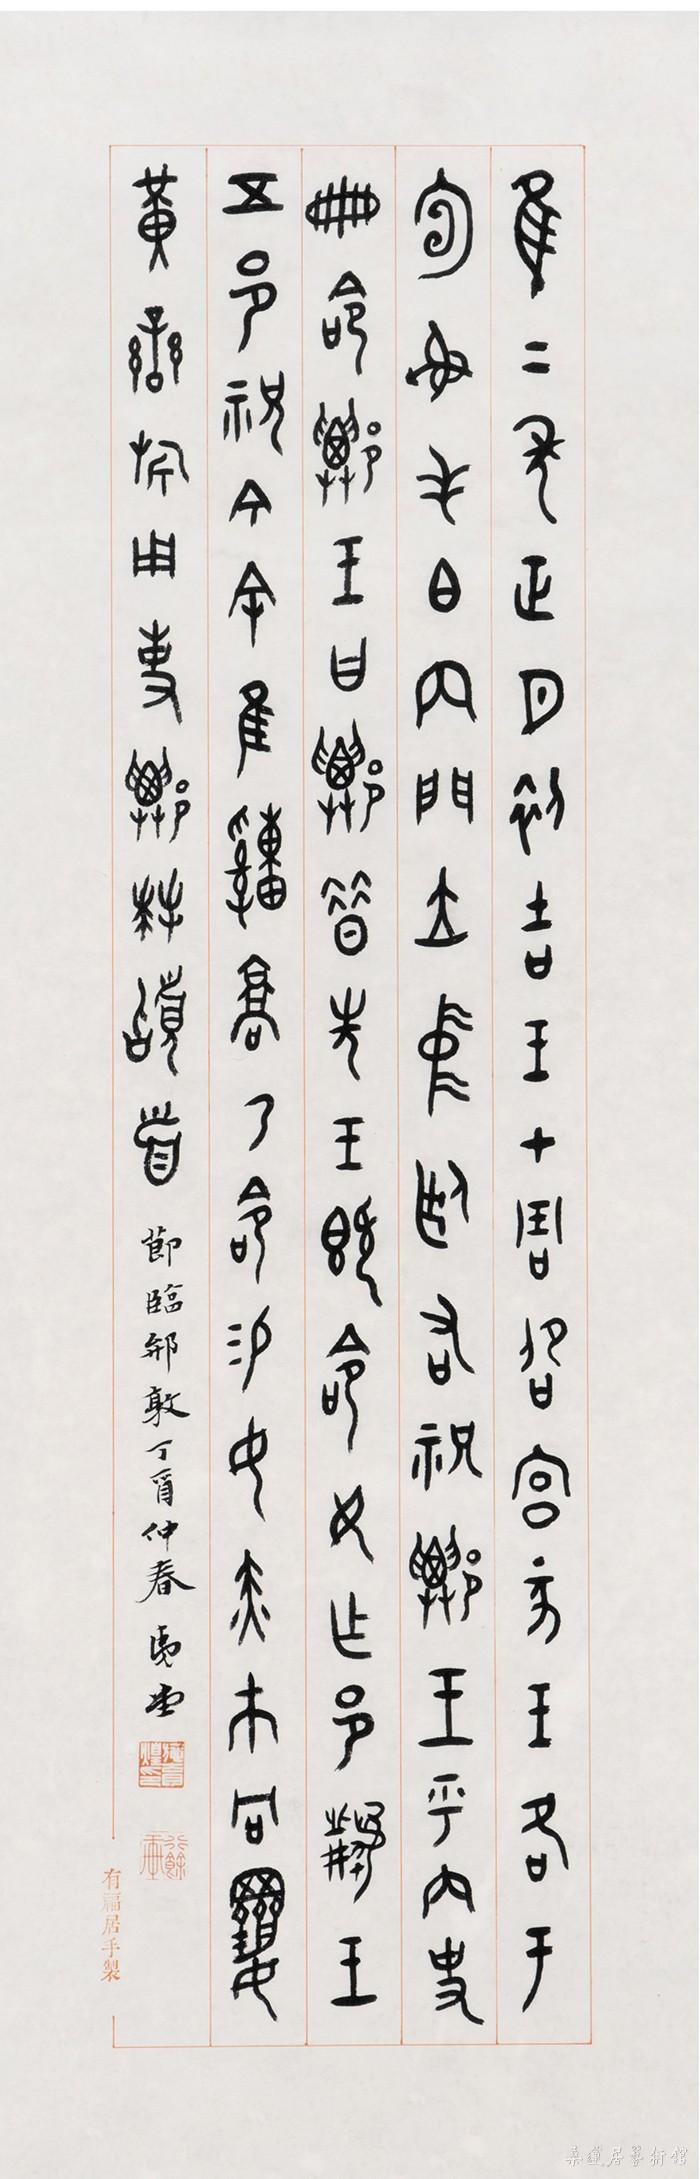 隹二年正月初吉王才周邵宮亥王各于
宣射毛白內門立中廷右祝鄦王乎內史
冊命鄦王曰鄦昔先王既命女乍邑𤔲王
五邑祝今余隹𤕌𩫖乃命易女赤巿冋䙴
黃䜌旂用事鄦拜稽首 節臨敦丁酉仲春
有福居手製
桑蓮居藝術館